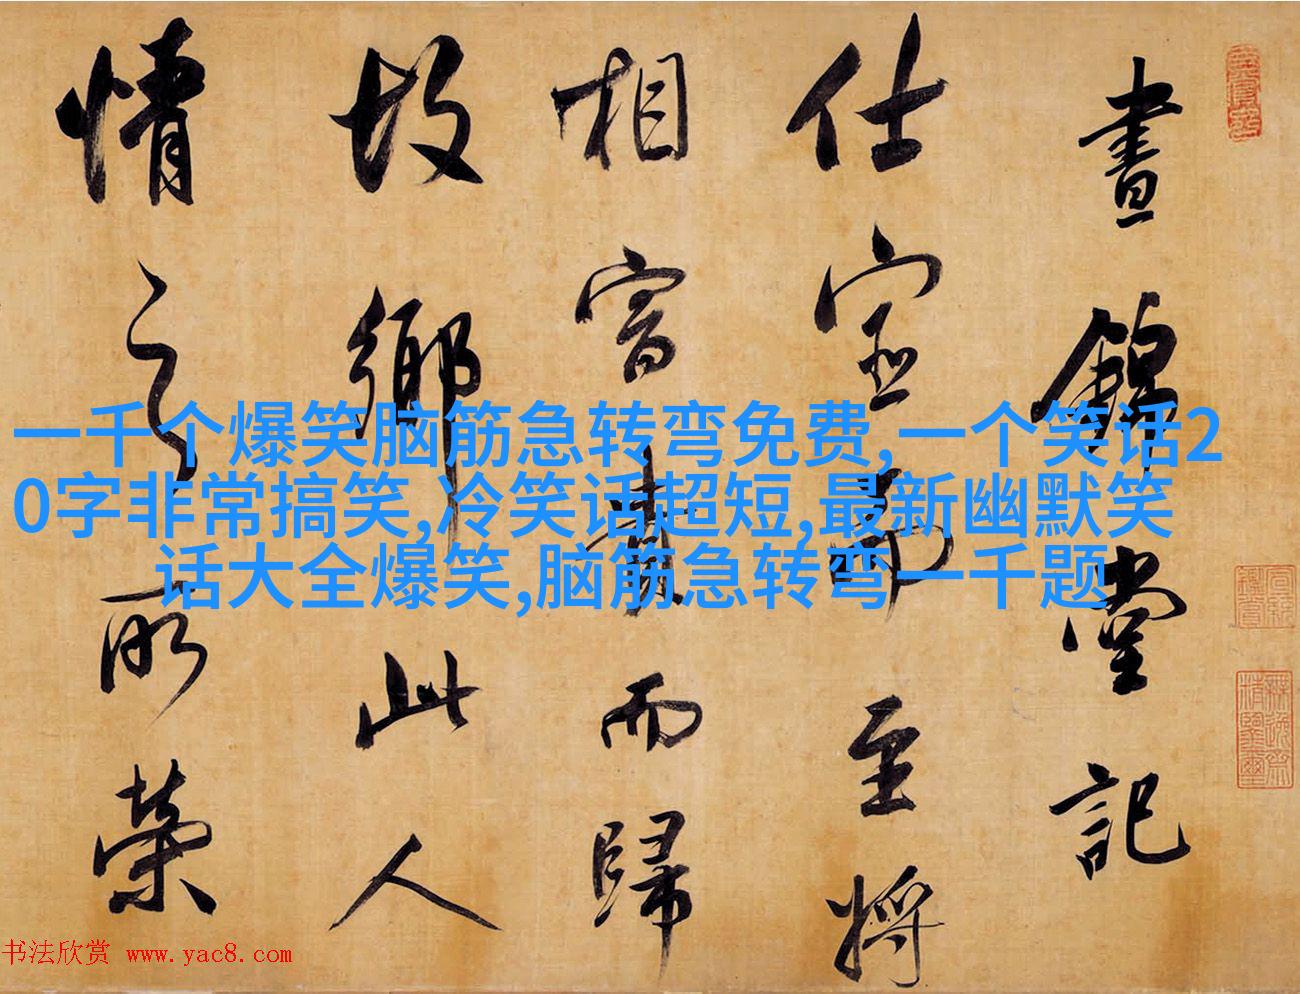 晝錦堂記
仕宦而至將
相富貴而歸
故鄉此人
情之所榮
一千个爆笑脑筋急转弯免费,一个笑话2
0字非常搞笑,冷笑话超短,最新幽默笑
话大全爆笑,脑筋急转弯一千题
书法欣赏 www.yac8.com